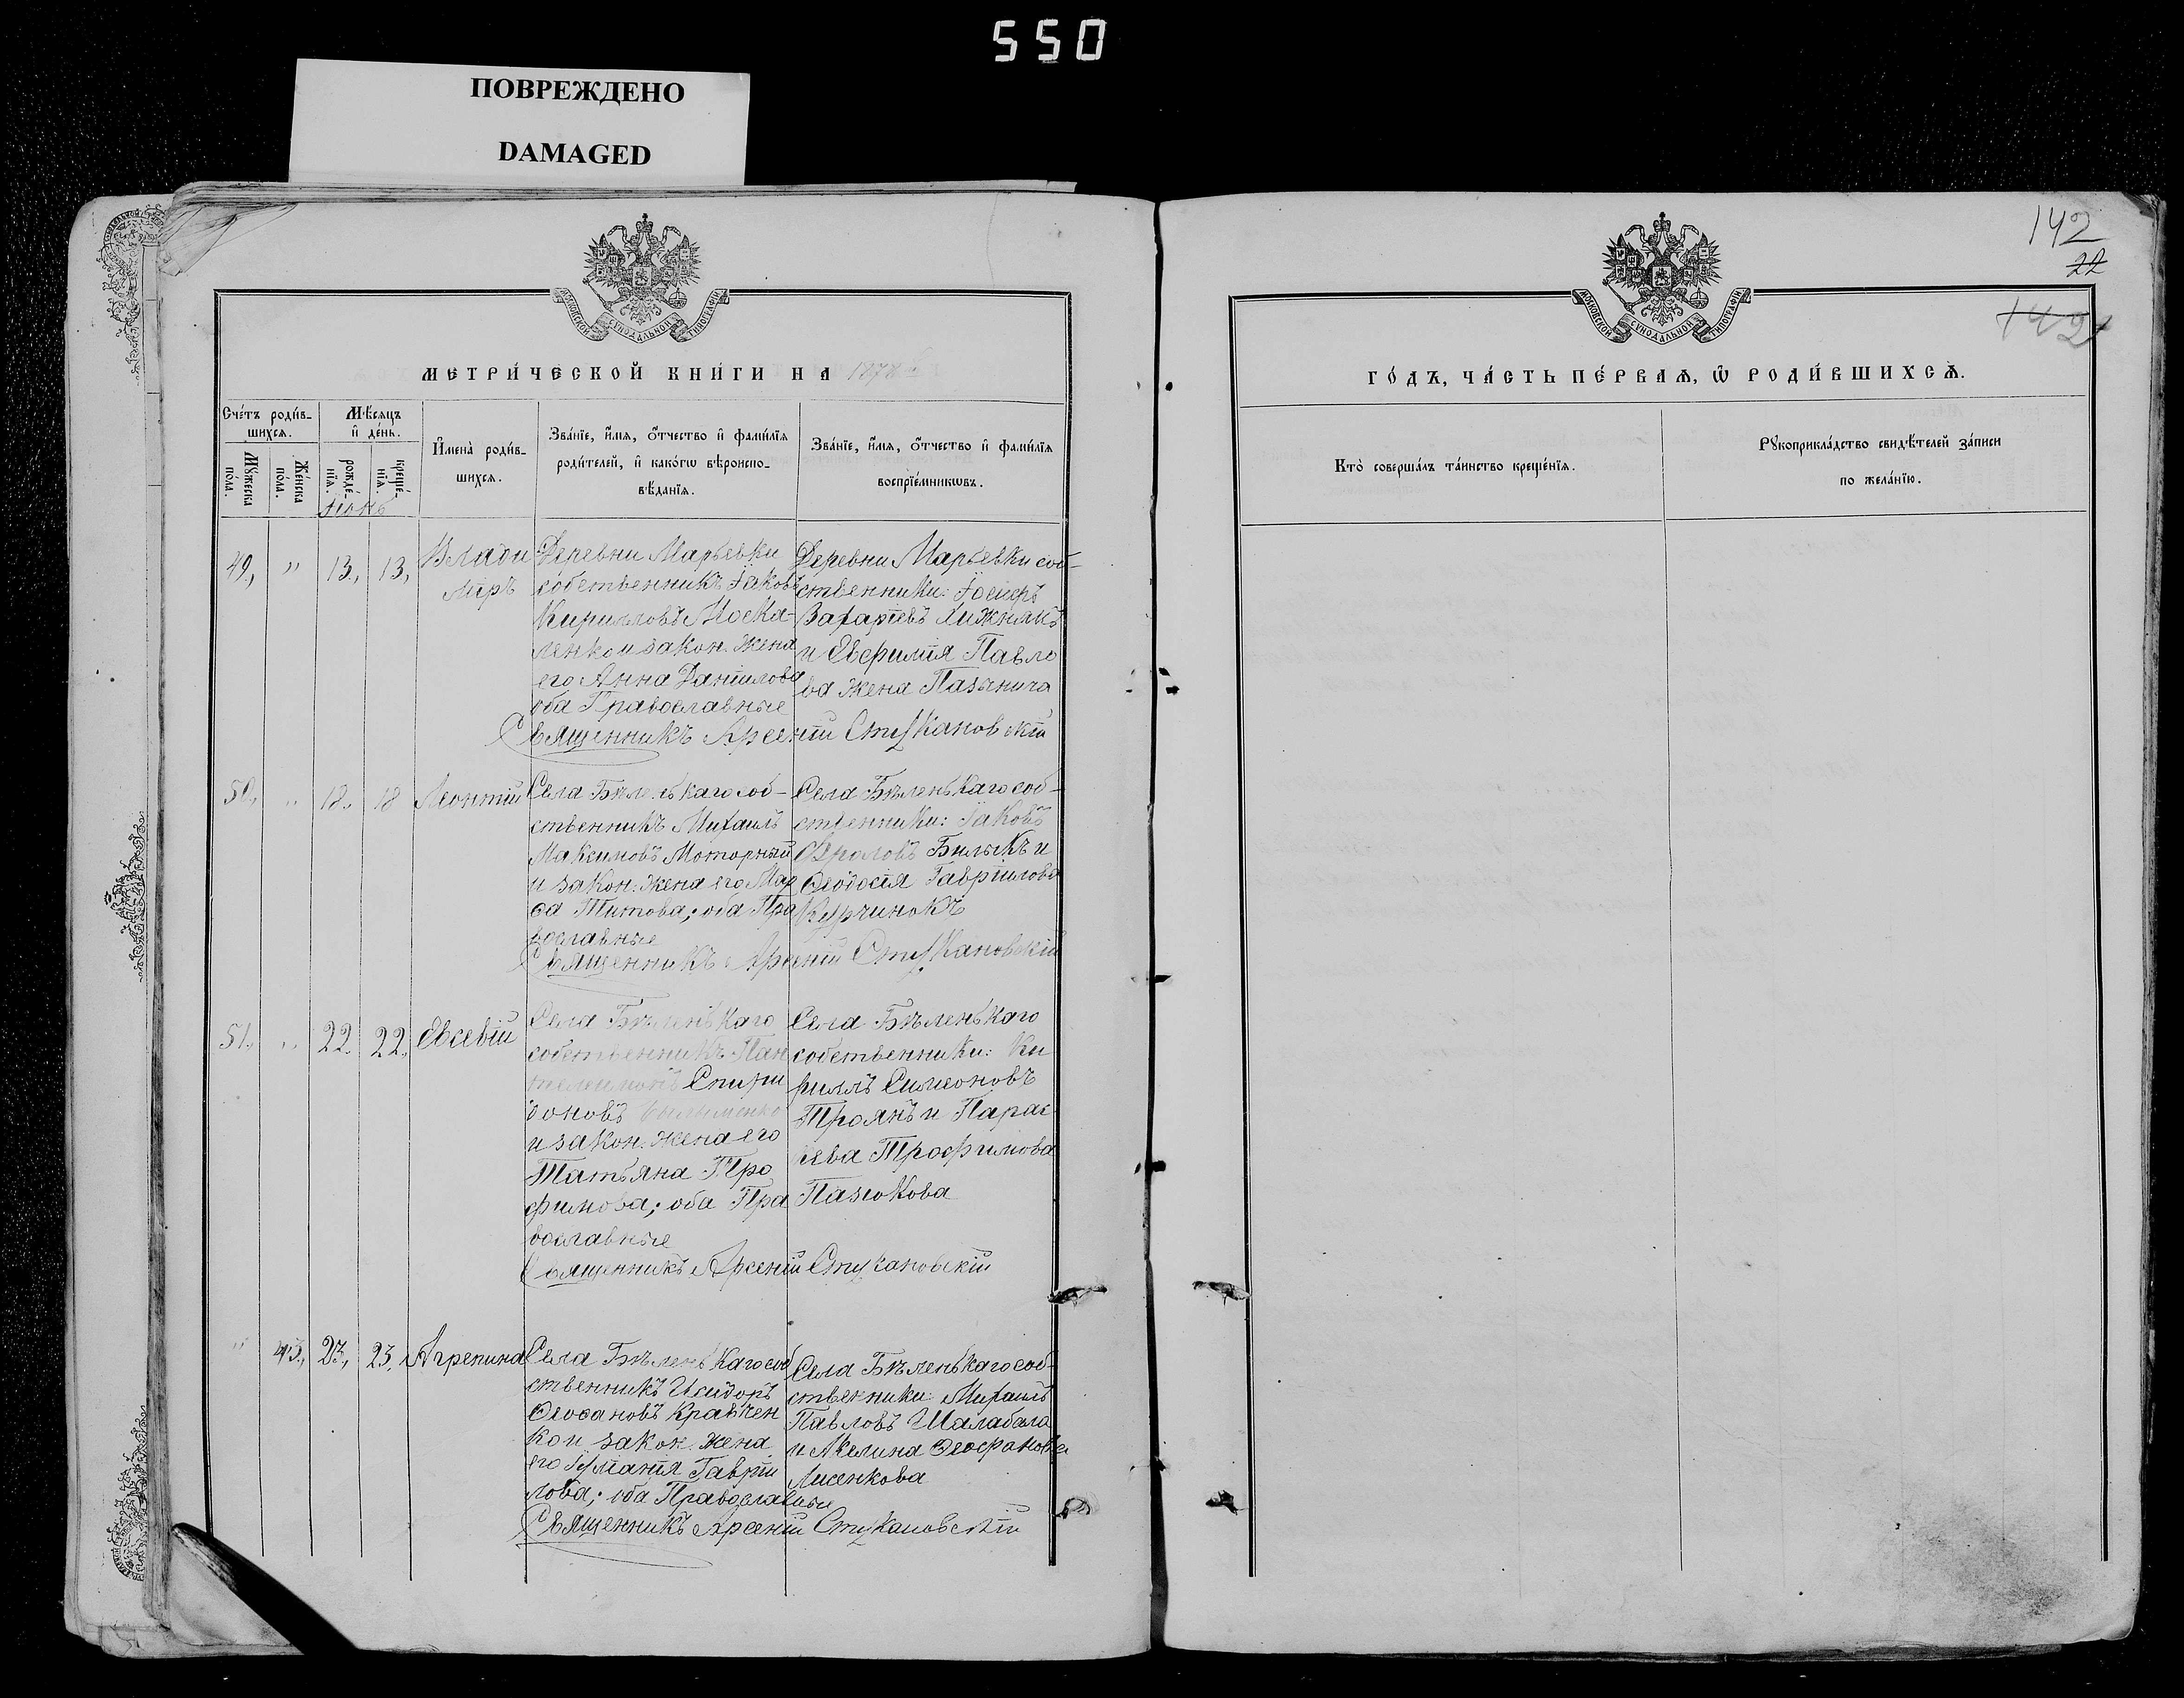 550
ПОВРЕЖДЕНО
DAMAGED
142
22
142
МОСКОВСКОЙ СѴНОДАЛЬНОЙ ТИПОГРАФІИ
МЕТРИ́ЧЕСКОЙ КНИ́ГИ НА 1878
Сче́тъ роди́в-
шихсѧ.
Мѣ́сѧцъ
и҆ де́нь.
И҆мена̀ роди́в-
шихсѧ.
Зва́нїе, и҆́мѧ, ѻ҆́тчество и҆ фами́лїѧ
роди́телей, и҆ како́гѡ вѣроиспо-
вѣ́данїѧ.
Зва́нїе, и҆́мѧ, ѻ҆́тчество и҆ фами́лїѧ
воспрїе́мникѡвъ.
Мꙋ́жеска
по́ла.
Же́нска
по́ла.
рожде́-
нїѧ.
креще́-
нїѧ.
49., " 13., 13,
Влади
миръ
Деревни Марьевки
собственникъ Іаковъ
Кирилловъ Моска-
ленко и закон. жена
его Анна Даніилова
оба Православные
Деревни Марьевки соб-
ственники: Іосифъ
Захаріевъ Хижнякъ
и Евфимія Павло
ва жена
Священникъ Арсеній Стукановскій
50., " 18. 18
Леонтій
Села Бѣленькаго соб-
ственникъ Михаилъ
Максимовъ Моторный
и закон. жена его Мар
ѳа Титова; оба Пра
вославные
Села Бѣленькаго соб-
ственники: Іаковъ
Фроловъ Билыкъ и
Ѳеодосія Гавріилова
Курчинокъ
Священникъ Арсеній Стукановскій
51. " 22. 22.
Евсевій
Села Бѣленькаго
собственникъ Пан
телеимонъ Спири
доновъ
и закон. жена его
Татьяна Тро
фимова; оба Пра
вославные
Села Бѣленькаго
собственники: Ки
риллъ Симеоновъ
Троянъ и Парас
кева Трофимова
Пазюкова
Священникъ Арсеній Стукановскій
" 43., 23, 23,
Агрепина
Села Бѣленькаго соб
ственникъ Исидоръ
Ѳеофановъ Кравчен
ко и закон. жена
его Іуліанія Гаврии
лова; оба Православные
Села Бѣленькаго соб-
ственники: Михаилъ
Павловъ Шалабала
и Акелина Ѳеофанова
Лисенкова
Священникъ Арсеній Стукановскій
МОСКОВСКОЙ СѴНОДАЛЬНОЙ ТИПОГРАФІИ
ГО́ДЪ, ЧА́СТЬ ПЕ́РВАѦ, Ѽ РОДИ́ВШИХСѦ.
Кто̀ соверша́лъ та́инство креще́нїѧ.
Рꙋкоприкла́дство свидѣ́телей за́писи
по жела́нїю.